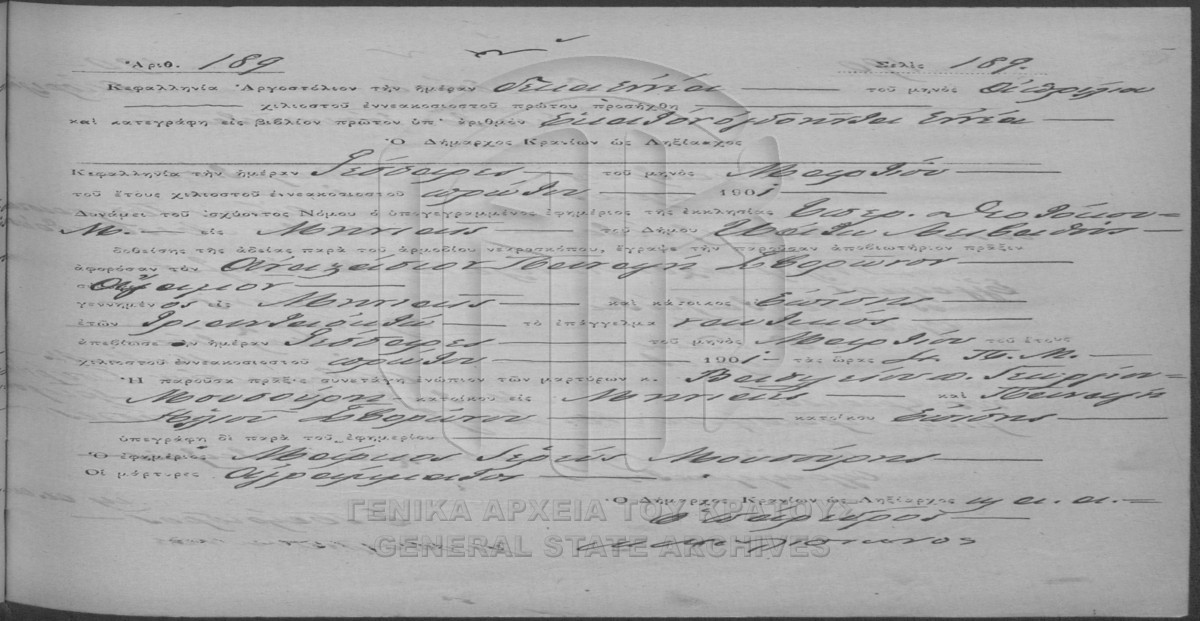 Ἀριθ. 189 Σελὶς 189.
Κεφαλληνία Ἀργοστόλιον τὴν ἡμέραν δεκαεννέα τοῦ μηνὸς Ἀπριλίου
χιλιοστοῦ ἐννεακοσιοστοῦ πρώτου προσήχθη
καὶ κατεγράφη εἰς βιβλίον πρῶτον ὑπ' ἀριθμὸν Ἑκατὸν ὀγδοῆντα ἐννέα
Ὁ Δήμαρχος Κρανίων ὡς Ληξίαρχος
Κεφαλληνία τὴν ἡμέραν Τέσσαρες τοῦ μηνὸς Μαρτίου
τοῦ ἔτους χιλιοστοῦ ἐννεακοσιοστοῦ πρώτου 1901
Δυνάμει τοῦ ἰσχύοντος Νόμου ὁ ὑπογεγραμμένος ἐφημέριος τῆς ἐκκλησίας Ὑπερ. Θεοτόκου
Μ. εἰς Μηνιαῖς τοῦ Δήμου
δοθείσης τῆς ἀδείας παρὰ τοῦ ἁρμοδίου νεκροσκόπου, ἔγραψε τὴν παροῦσαν ἀποβιωτήριον πρᾶξιν
ἀφορῶσαν τὸν Ἀναστάσιον Παναγῆ
γεννημένος εἰς Μηνιαῖς καὶ κάτοικος ἐπίσης
ἐτῶν Τριανταοκτώ τὸ ἐπάγγελμα ναυτικός
ἀπεβίωσε τὴν ἡμέραν Τέσσαρες τοῦ μηνὸς Μαρτίου τοῦ ἔτους
χιλιοστοῦ ἐννεακοσιοστοῦ πρώτου 1901 τὰς ὥρας Π. Μ.
Ἡ παροῦσα πρᾶξις συνετάγη ἐνώπιον τῶν μαρτύρων κ. Γεωργίου
Μουσούρη κατοίκου εἰς Μηνιαῖς καὶ Παναγῆ
κατοίκου ἐπίσης
ὑπεγράφη δὲ παρὰ τοῦ ἐφημερίου
Ὁ ἐφημέριος Μαρῖνος Ἱερεὺς Μουσούρης
Οἱ μάρτυρες ἀγράμματοι
Ὁ Δήμαρχος Κρανίων ὡς Ληξίαρχος κ. α. α.
Ὁ Πάρεδρος
ΓΕΝΙΚΑ ΑΡΧΕΙΑ ΤΟΥ ΚΡΑΤΟΥΣ
GENERAL STATE ARCHIVES